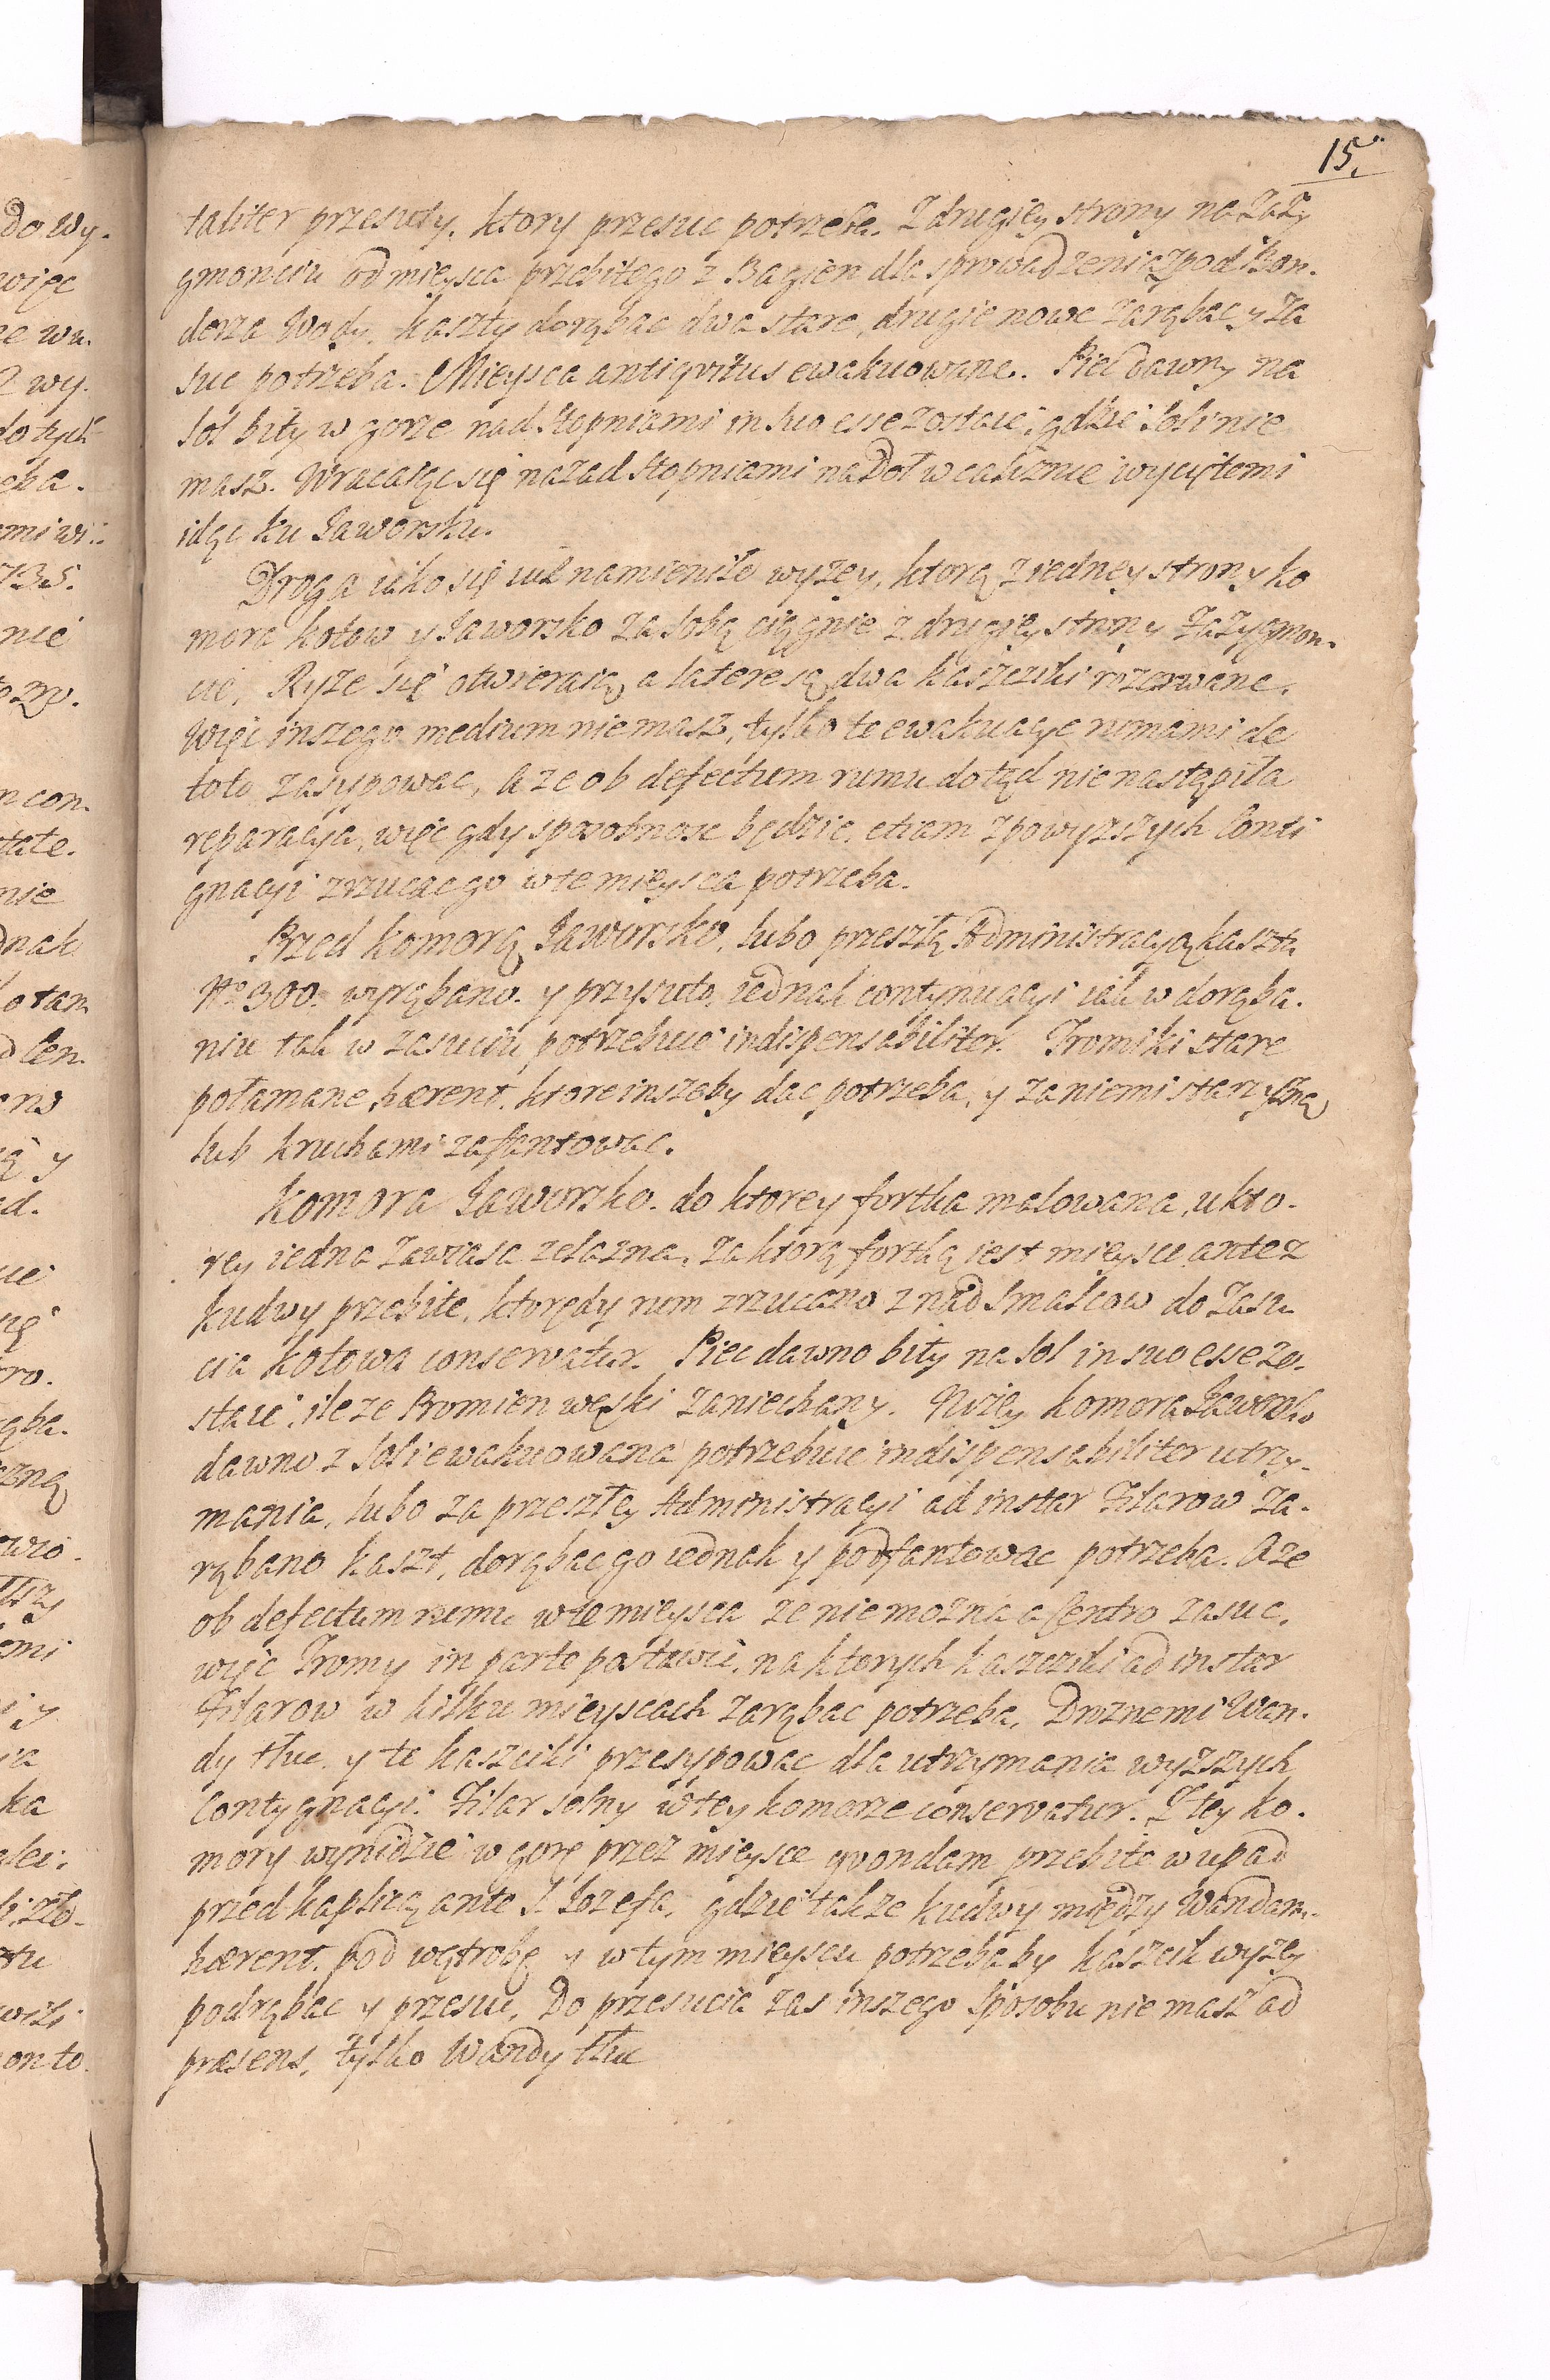 15.
taliter przesuty, ktory przesuc potrzeba. Z drugiey strony na Zazy
gmonciu od mieysca przebitego z Bagien dla sprowadzenia zpod Bon.
derza Wody, kaszty dorąbac dwa stare, drugie nowe zarąbac y za
suc potrzeba. Mieysca antiqvitus ewakuowane. Piec dawny na
sol bity w gorze nad stopniami in suo esse zostaie, gdzie soli nie
masz. Wracaiąc się nazad stopniami na Doł w caliznie wyciętemi
idąc ku Jaworsku.
Droga iako się iuz namieniło wyzey, ktorą z iedney strony ko
mora kotow y Jaworsko za sobą ciągnie z drugiey strony Zazygmon.
cie, Ryze się otwieraią, a latere są dwa kaszciki rozerwane,
Więc inszego medium nie masz, tylko te ewakuacye rumami de
toto zasypowac, A ze ob defectum rumu dotąd nie nastąpiła
reparacya, więc gdy sposobnosc będzie, etiam z powyzszych Conti
gnacyi zrzucac go w te mieysca potrzeba.
Przed komorą Jaworsko, lubo przeszłą Administracyą kasztu
No 300. wyrąbano y przysuto, iednak continuacyi iak w dorąba.
niu tak w zasuciu potrzebuie indispensabiliter. Tromiki stare
połamane hærent, ktore insze by dac potrzeba, y za niemi starzyzną
lub kruchami zafantowac.
Komora Jaworsko. do ktorey fortka malowana, u kto.
rey iedna zawiasa zelazna, za ktorą fortką iest mieysce ante z
kudwy przebite, ktorędy rum zrzucano z nad Smalcow do zasu
cia kotowa conservatur. Piec dawno bity na sol in suo esse zo.
staie, ile ze Promien węski zaniechany. Nizey komora Jaworsko
dawno z soli ewakuowana potrzebuie indispensabiliter utrzy.
mania, lubo za przeszłey Administracyi ad instar Filarow za.
rąbano kaszt, dorąbac go iednak y podfantowac potrzeba. A ze
ob defectum rumu w te mieysca ze nie mozna a Centro zasuc,
więc Tromy in parte postawic, na ktorych kaszciki ad instar
Filarow w kilku mieyscach zarąbac potrzeba, Droznemi Wan.
dy tłuc y te kaszciki przesypowac dla utrzymania wyzszych
Contygnacyi. Filar solny w tey komorze conservatur. Z tey ko.
mory wynidzie w gorę przez mieysce qvondam przebite w upad
przed kaplicą ante S. Jozefa, gdzie takze kudwy między Wandami
hærent pod wątrobę y w tym mieyscu potrzeba by kaszcik wyzey
podrąbac y przesuc, Do przesucia zas inszego sposobu nie masz ad
præsens, tylko Wandy tłuc